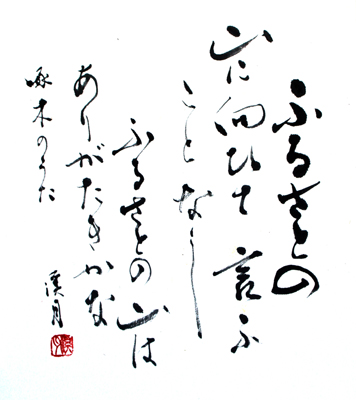 ふるさとの
山に向ひて言ふ
ことなし
ふるさとの山は
ありがたきかな
啄木のうた
溪月